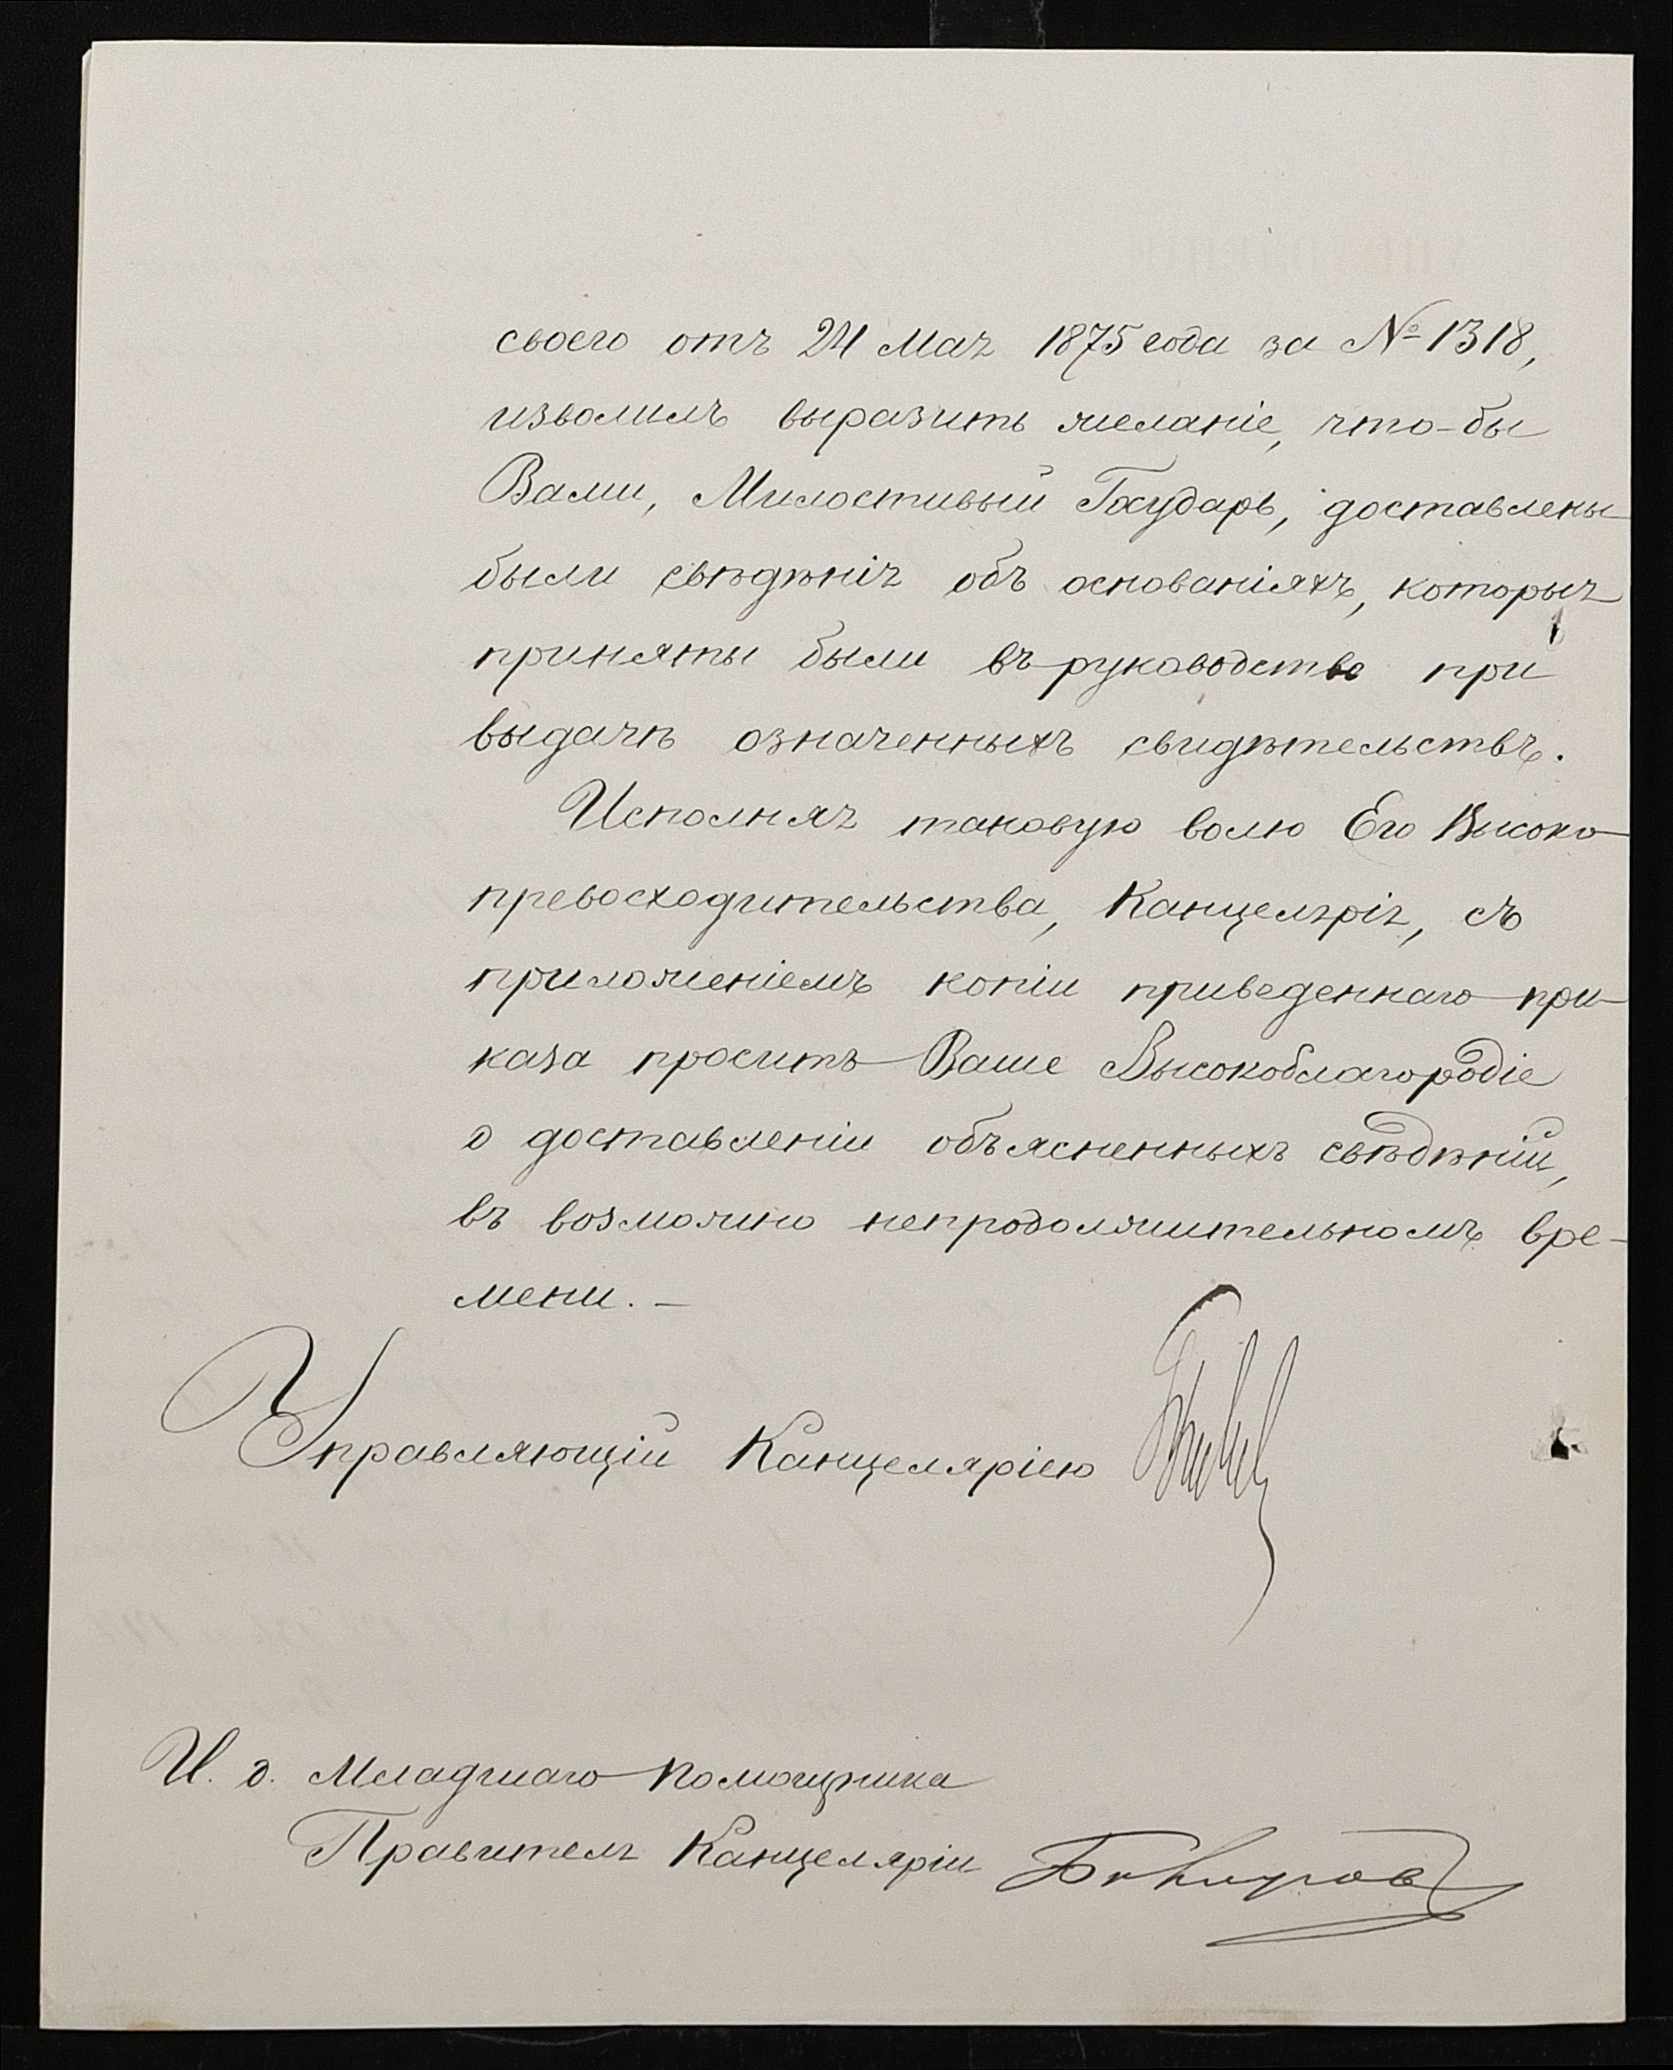 своего отъ 24 Мая 1875 года за № 1318,
изволилъ выразить желаніе, что-бы
Вами, Милостивый Государь, доставлены
были свѣдѣнія объ основаніяхъ, которыя
приняты были въ руководство при
выдачѣ означенныхъ свидѣтельствъ.
Исполняя таковую волю Его Высоко-
превосходительства, Канцелярія, съ
приложеніемъ копіи приведеннаго при-
каза проситъ Ваше Высокоблагородіе
о доставленіи объясненныхъ свѣдѣній,
въ возможно непродолжительномъ вре-
мени. –
Управляющій Канцеляріею
И. д. Младшаго Помощника
Правителя Канцеляріи